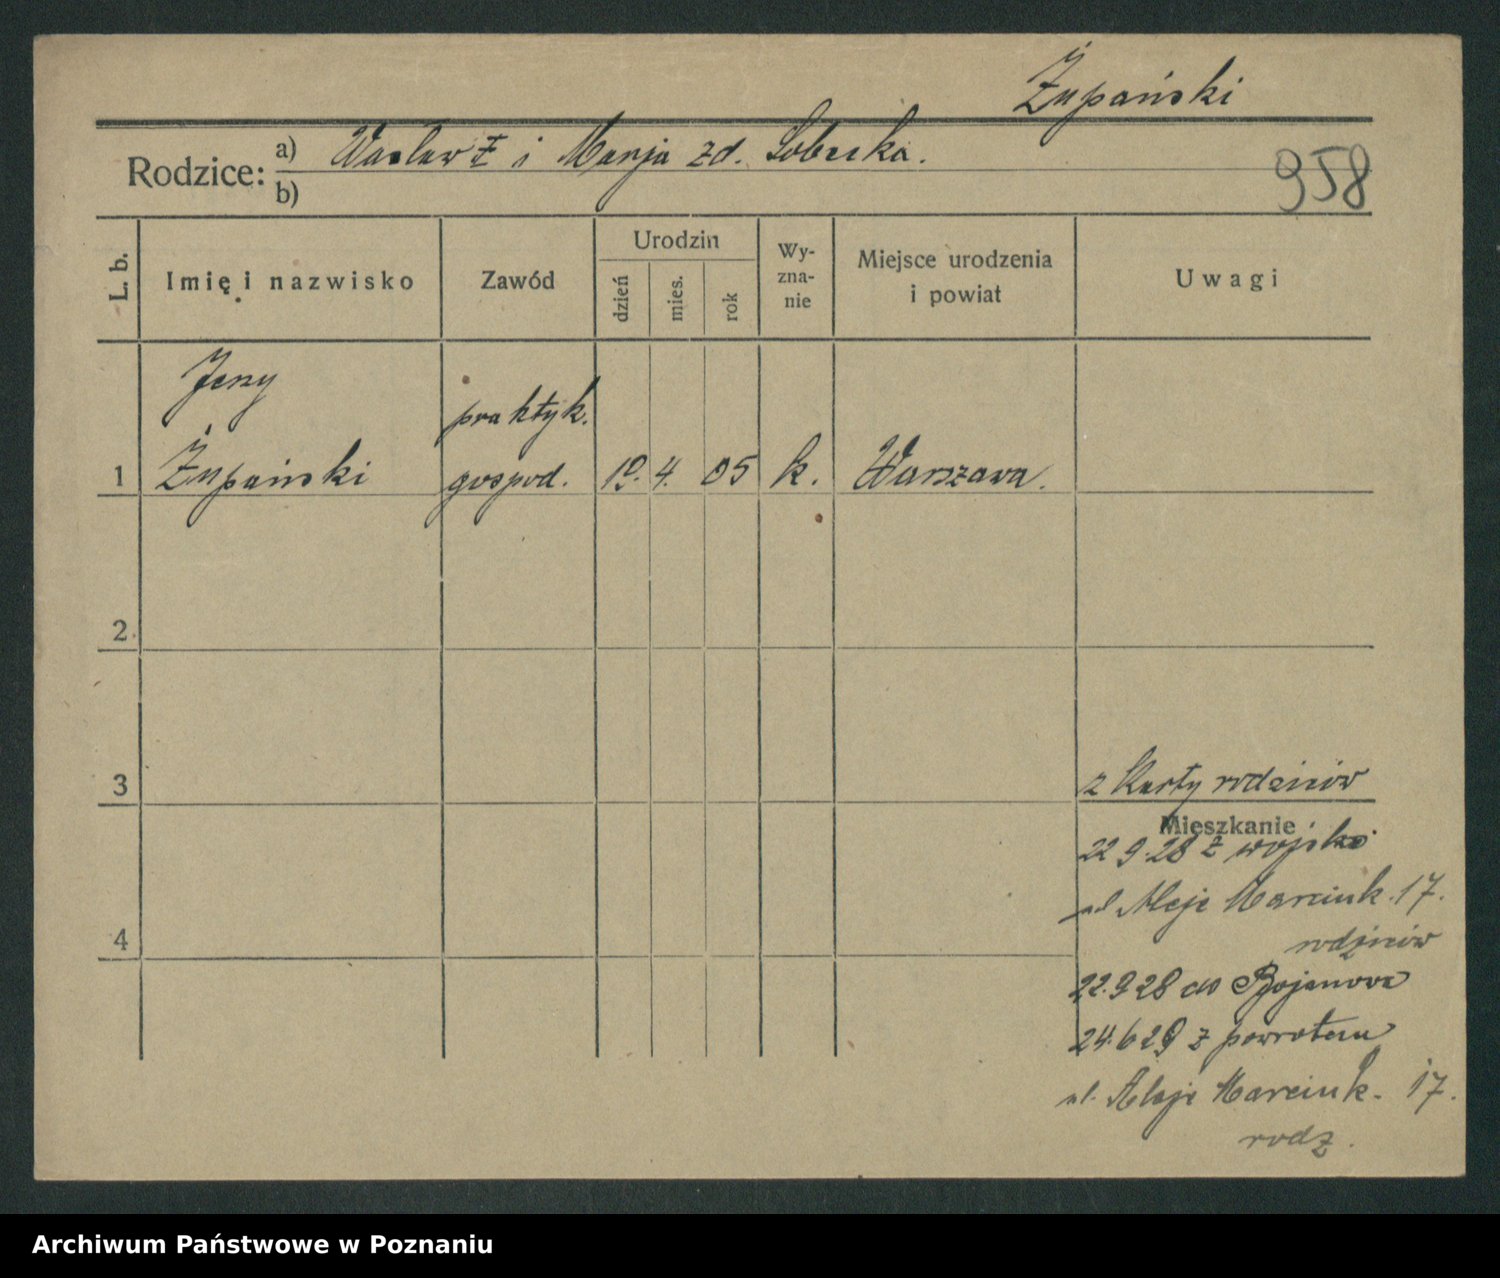 Żupański
Rodzice: a) Wacław Ż i Marja zd. Sobecka.
b)
958
L. b.
Imię i nazwisko
Zawód
Urodzin
dzień
mies.
rok
Wy-
zna-
nie
Miejsce urodzenia
i powiat
Uwagi
Jerzy
praktyk.
1 Żupański gospod. 19. 4. 05 k. Warszawa.
2
3
z Karty rodziców
Mieszkanie
22 9.28 z wojska
ul Aleje Marcink. 17.
4
rodziców
22.9 28 do Bojanowa
24.6 29 z powrotem
ul. Aleje Marcink. 17.
rodz.
Archiwum Państwowe w Poznaniu